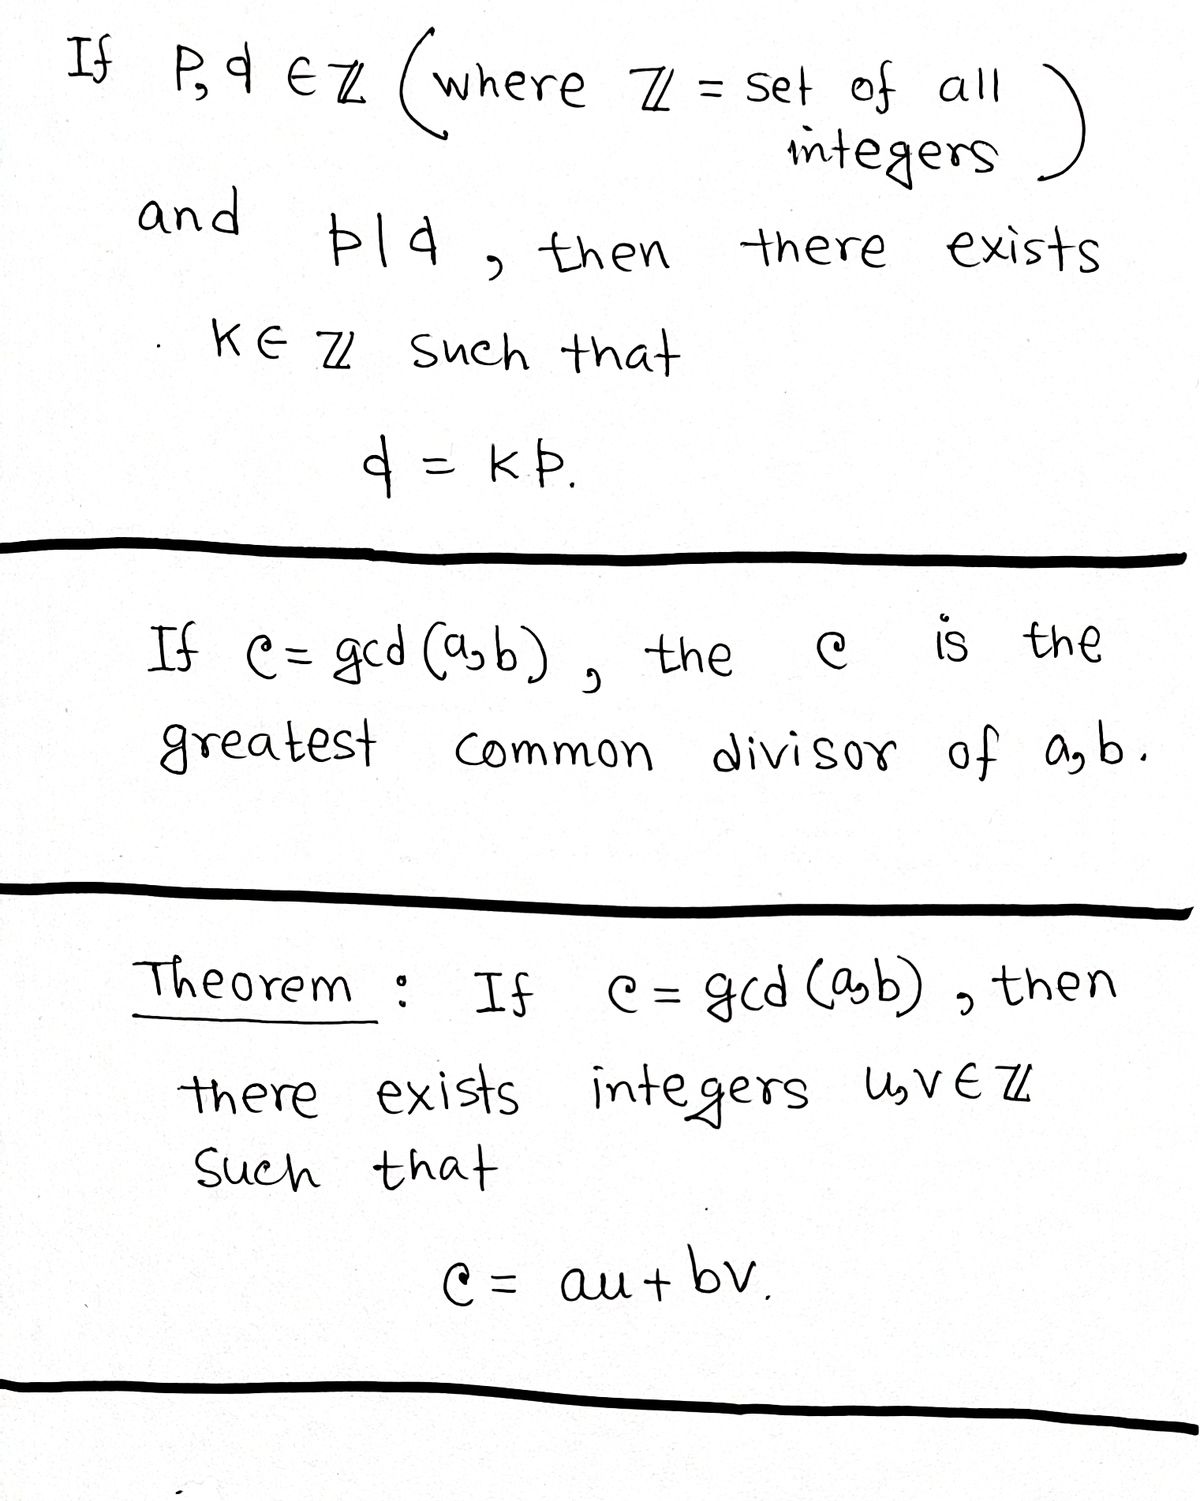 If p, q ∈ ℤ (where ℤ = set of all
integers)
and p | q , then there exists
K ∈ ℤ such that
q = K p.
If c = gcd (a, b) , the c is the
greatest common divisor of a, b.
Theorem : If c = gcd (a, b) , then
there exists integers u, v ∈ ℤ
Such that
c = au + bv.